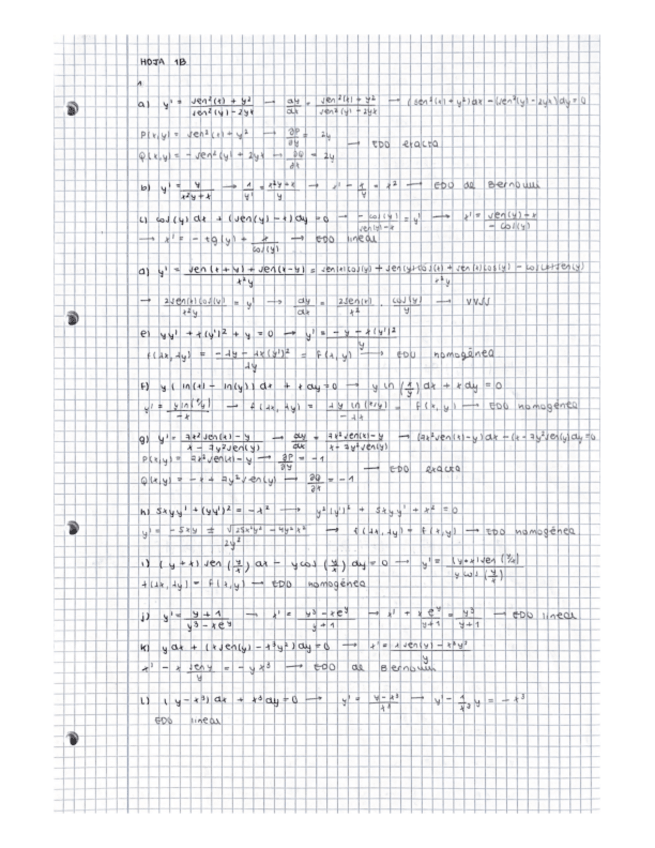 HOJA 1B
1
a) y' = (sen²(x) + y²)/(sen²(y) - 2yx) → dy/dx = (sen²(x) + y²)/(sen²(y) - 2yx) → (sen²(x) + y²)dx - (sen²(y) - 2yx)dy = 0
P(x,y) = sen²(x) + y² → ∂P/∂y = 2y
→ EDO exacta
Q(x,y) = - sen²(y) + 2yx → ∂Q/∂x = 2y
b) y' = y/(x²y + x) → 1/y' = (x²y + x)/y → x' - x/y = x² → EDO de Bernoulli
c) cos(y) dx + (sen(y) - x) dy = 0 → - cos(y)/(sen(y) - x) = y' → x' = (sen(y) - x)/(- cos(y))
→ x' = - tg(y) + x/cos(y) → EDO lineal
d) y' = (sen(x + y) + sen(x - y))/(x²y) = (sen(x)cos(y) + sen(y)cos(x) + sen(x)cos(y) - cos(x)sen(y))/(x²y)
→ 2sen(x)cos(y)/(x²y) = y' → dy/dx = 2sen(x)/x² · cos(y)/y → VVSS
e) yy' + x(y')² + y = 0 → y' = (- y - x(y')²)/y
f(λx, λy) = (- λy - λx(y')²)/λy = f(x, y) → EDO homogénea
f) y(ln(x) - ln(y)) dx + x dy = 0 → y ln(x/y) dx + x dy = 0
y' = y ln(x/y)/(-x) → f(λx, λy) = λy ln(x/y)/(-λx) = f(x, y) → EDO homogénea
g) y' = (3x²sen(x) - y)/(x - 3y²sen(y)) → dy/dx = (3x²sen(x) - y)/(x - 3y²sen(y)) → (3x²sen(x) - y)dx - (x - 3y²sen(y))dy = 0
P(x,y) = 3x²sen(x) - y → ∂P/∂y = -1
→ EDO exacta
Q(x,y) = - x + 3y²sen(y) → ∂Q/∂x = -1
h) 5xyy' + (yy')² = -x² → y²(y')² + 5xyy' + x² = 0
y' = (- 5xy ± √(25x²y² - 4y²x²))/2y² → f(λx, λy) = f(x,y) → EDO homogénea
i) (y + x) sen(y/x) dx - y cos(y/x) dy = 0 → y' = (y + x) sen(y/x)/(y cos(y/x))
f(λx, λy) = f(x,y) → EDO homogénea
j) y' = (y + 1)/(y³ - xe^y) → x' = (y³ - xe^y)/(y + 1) → x' + x e^y/(y + 1) = y³/(y + 1) → EDO lineal
k) y dx + (x sen(y) - x³y²) dy = 0 → x' = (x sen(y) - x³y²)/y
x' - x sen y/y = - yx³ → EDO de Bernoulli
l) (y - x³) dx + x³ dy = 0 → y' = (y - x³)/x³ → y' - 1/x³ y = - x³
EDO lineal